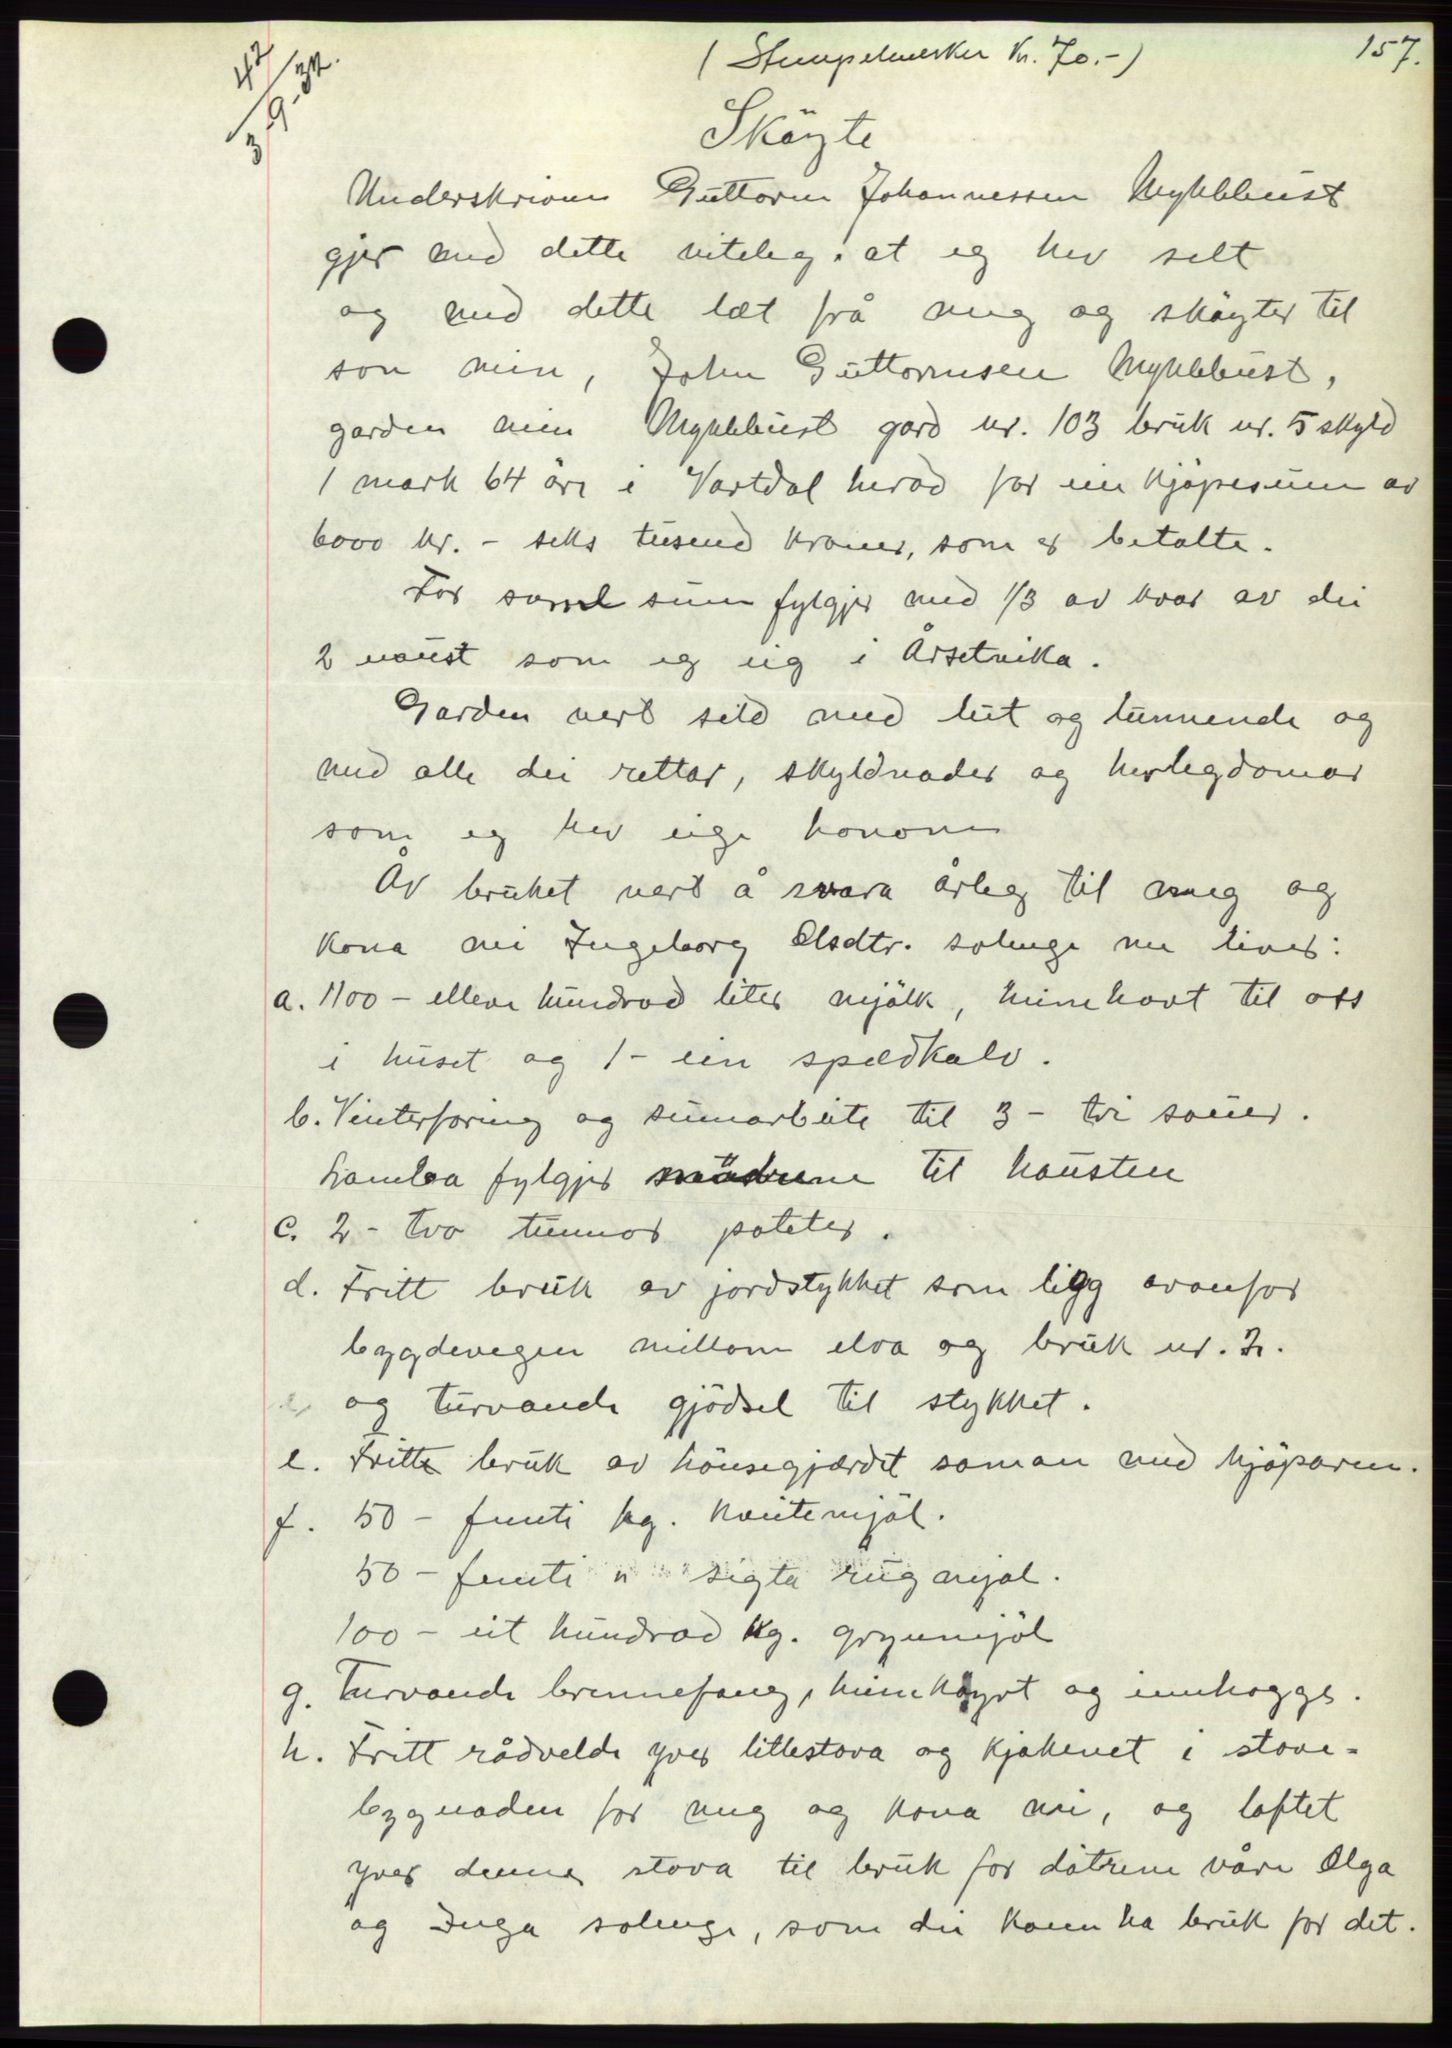 157.
( Stempelmerker kr. 70.- )
42
3/9-32.
Sköyte
Underskriven Guttorm Johannessen Myklebust
gjer med dette viteleg: at eg hev selt
og med dette læt frå meg og sköyter til
son min, John Guttormsen Myklebust,
garden min Myklebust gard nr. 103 bruk nr. 5 skyld
1 mark 64 öre i Vartdal herad for ein kjöpesum av
6000 kr. - seks tusend kroner, som er betalte.
For same sum fylgjer med 1/3 av kvar av dei
2 naust som eg eig i Årsetvika.
Garden vert seld med lut og lunnende og
med alle dei rettar, skyldnader og herlegdomar
som eg hev eige honom
Av bruket vert å svara årleg til meg og
kona mi Ingeborg Olsdtr. solenge me liver:
a. 1100 - elleve hundrad liter mjölk, heimkavt til oss
i huset og 1 - ein spædkalv.
b. Vinterforing og sumarbeite til 3 - tri sauer.
Lamba fylgjer mödrene til hausten
c. 2 - tvo tunnor poteter.
d. Fritt bruk av jordstykket som ligg ovanfor
bygdevegen millom elva og bruk nr. 2.
og turvande gjödsel til stykket.
e. Fritt bruk av hönsegjærdet saman med kjöparen.
f. 50 - femti kg. kveitemjöl.
50 - femti " sigta rugmjöl.
100 - eit hundrad kg. grynmjöl
g. Turvande brennefang, heimköyrt og innhogge.
h. Fritt rådvelde yver litlestova og kjökenet i stove-
bygnaden for meg og kona mi, og loftet
yver denne stova til bruk for dötrene våre Olga
og Inga solenge, som dei kann ha bruk for det.